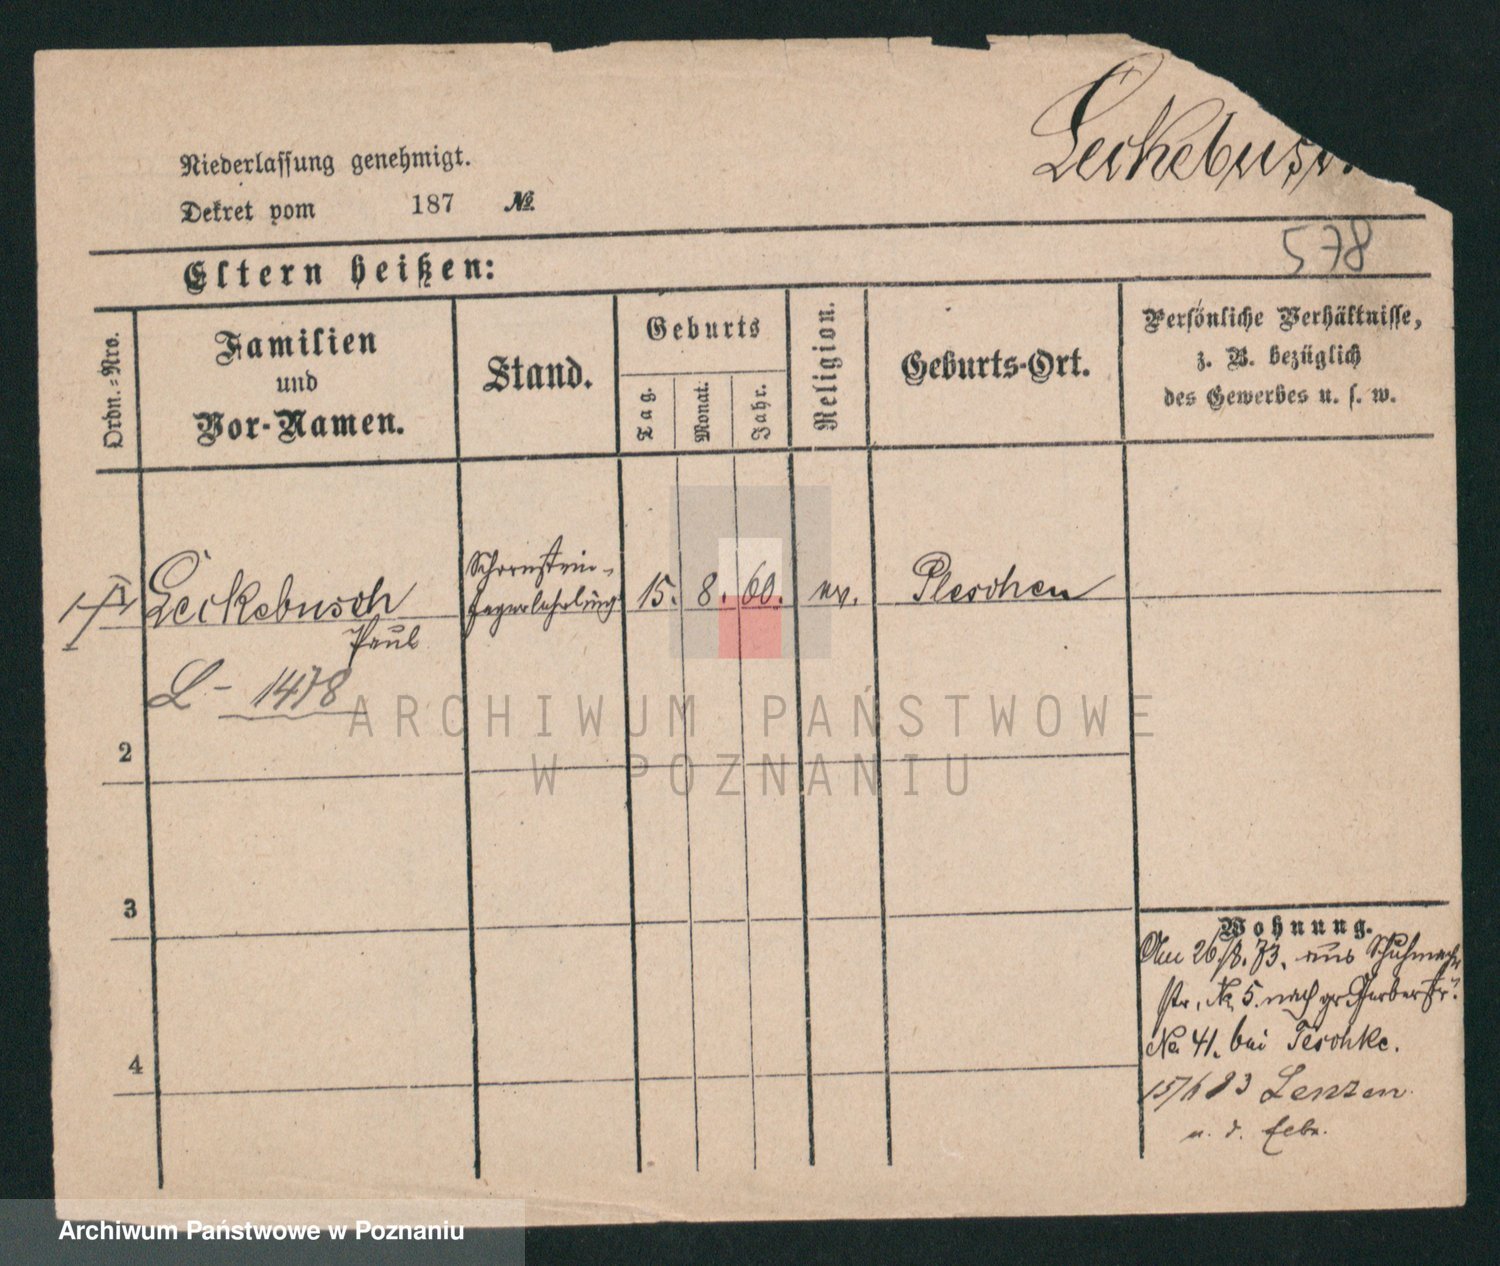 Leckebusch
Niederlassung genehmigt.
Dekret vom 187 №
578
Eltern heißen:
Ordn.-Nro.
Familien
und
Vor-Namen.
Stand.
Geburts
Tag.
Monat.
Jahr.
Religion.
Geburts-Ort.
Persönliche Verhältnisse,
z. B. bezüglich
des Gewerbes u. s. w.
1 Leckebusch Schornstein- 15. 8. 60. ev. Pleschen
Paul fegerlehrling
L - 1478
ARCHIWUM PAŃSTWOWE
W POZNANIU
2
3
4
Wohnung.
Am 26/8. 73. aus Schuhmacher
str. No. 5. nach gr. Gerberstr.
No. 41. bei Teschke.
15/6 83 Lenzen
a. d. Elbe.
Archiwum Państwowe w Poznaniu